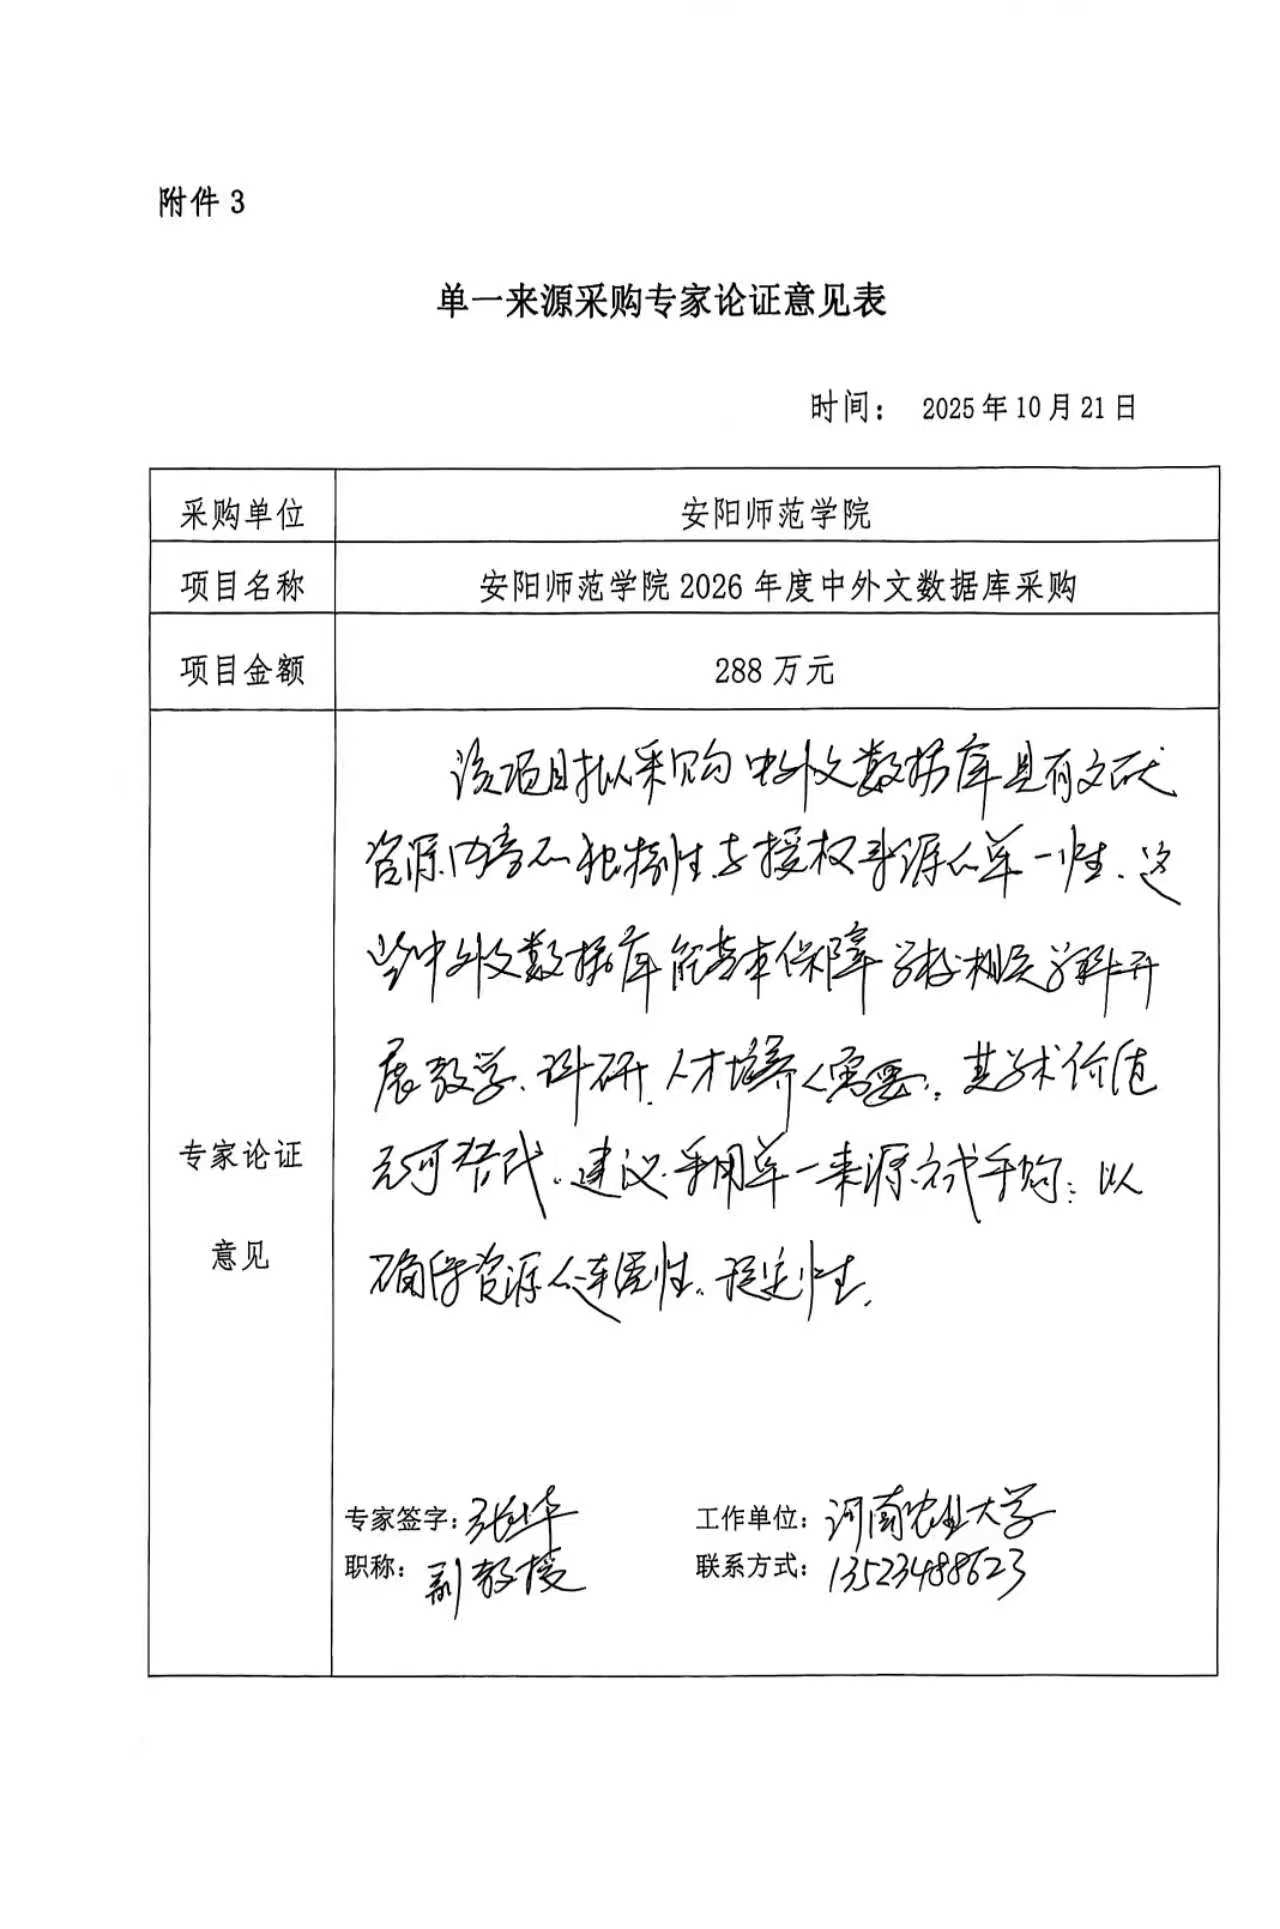 附件 3
单一来源采购专家论证意见表
时间： 2025年10月21日
采购单位 安阳师范学院
项目名称 安阳师范学院 2026 年度中外文数据库采购
项目金额 288 万元
专家论证
意见
该项目拟采购中外文数据库具有文献
资源内容的独特性与授权来源的单一性、这
些中外文数据库能基本保障学校相关学科开
展教学、科研、人才培养的需要，其学术价值
无可替代。建议采用单一来源方式采购，以
确保资源的连续性、稳定性。
专家签字：张华 工作单位：河南农业大学
职称：副教授 联系方式：13523488623